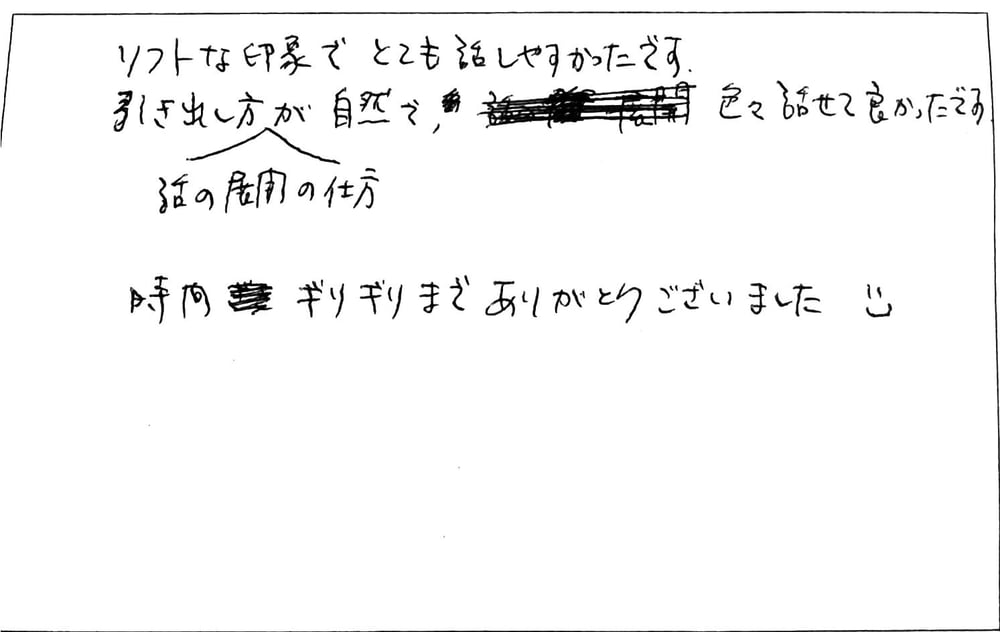 ソフトな印象で とても話しやすかったです.
引き出し方が 自然で, 色々話せて良かったです.
話の展開の仕方
時間 ギリギリまで ありがとうございました